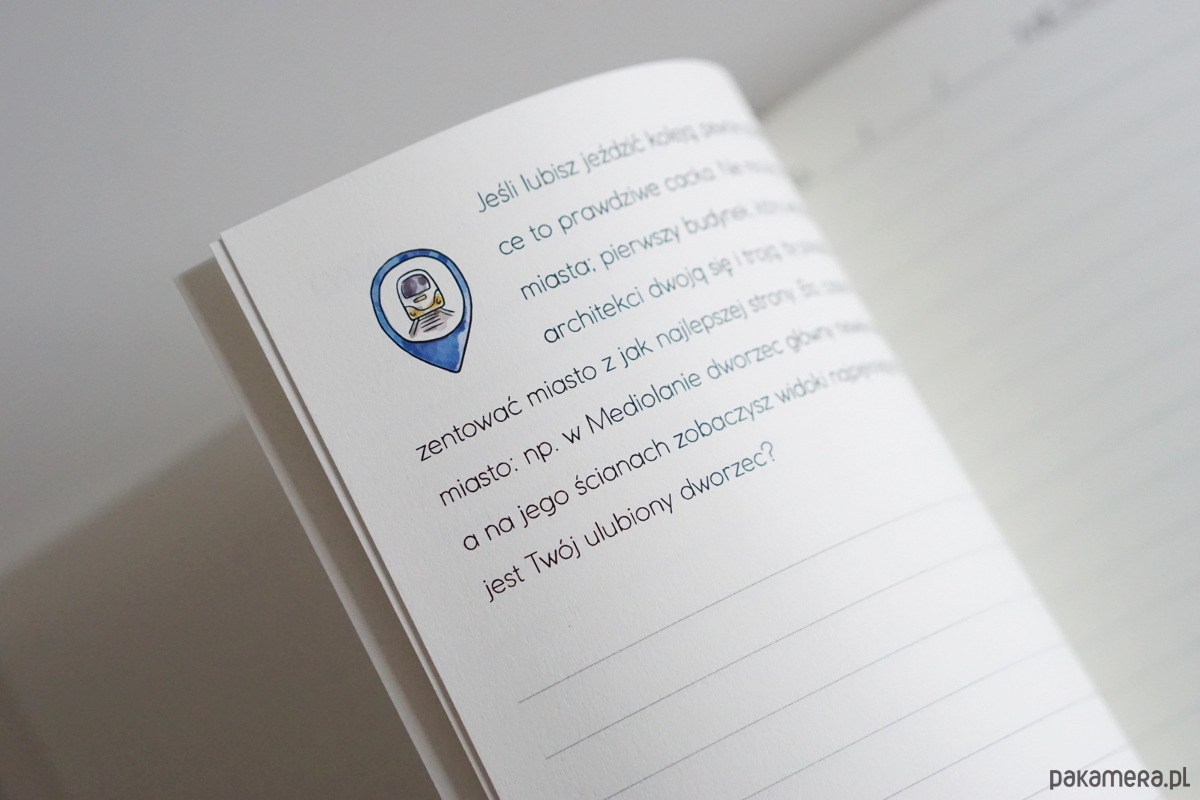 Jeśli lubisz jeździć koleją
ce to prawdziwe cacka. Nie
miasta: pierwszy budynek,
architekci dwoją się i troją,
zentować miasto z jak najlepszej strony.
miasto: np. w Mediolanie dworzec główny
a na jego ścianach zobaczysz widoki
jest Twój ulubiony dworzec?
pakamera.pl